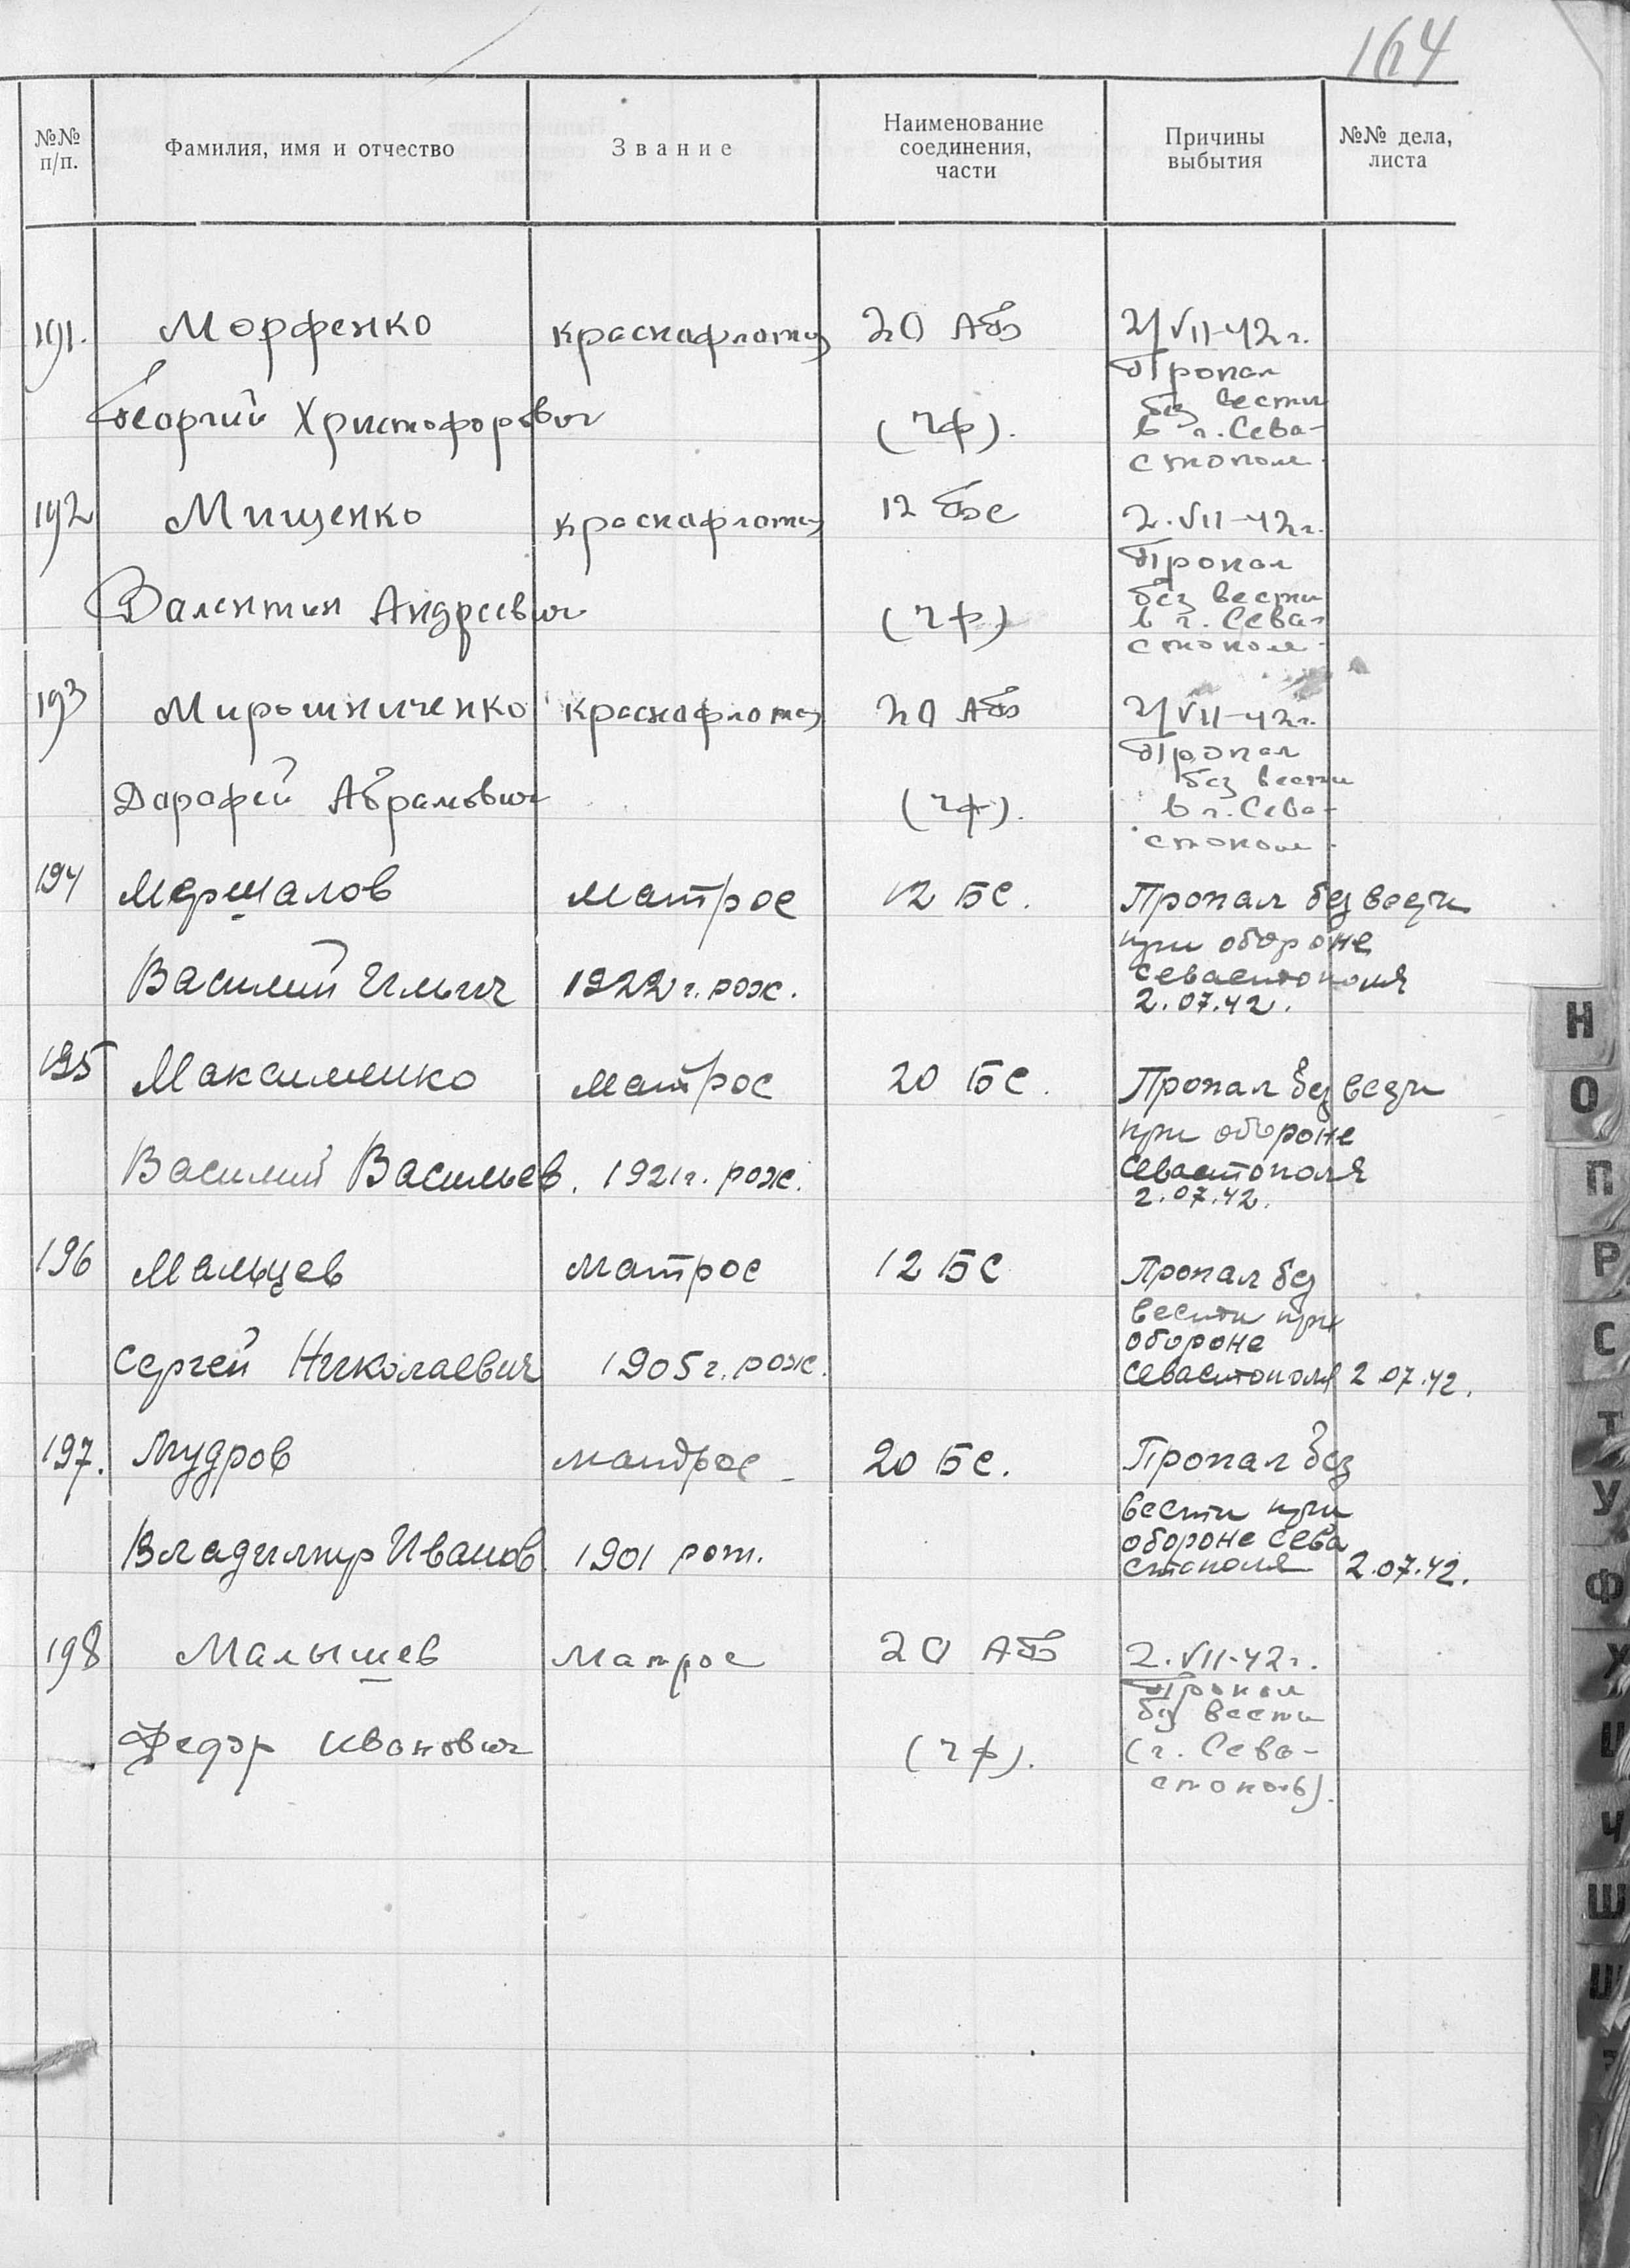 164
№№ п/п.
Фамилия, имя и отчество
Звание
Наименование соединения, части
Причины выбытия
№№ дела, листа
191. Морфенко краснофлотец 20 АБ 2/VII-42 г.
Пропал
Георгий Христофорович (ЧФ). без вести
в г. Сева-
стополе.
192 Мищенко краснофлотец 12 бс 2.VII-42 г.
Пропал
Валентин Андреевич (ЧФ) без вести
в г. Сева-
стополе.
193 Мирошниченко краснофлотец 20 АБ 2/VII-42 г.
Пропал
без вести
Дорофей Абрамович (ЧФ). в г. Сева-
стополе.
194 Маршалов матрос 12 БС. Пропал без вести
при обороне
Василий Ильич 1922 г. рож. Севастополя
2.07.42.
195 Максименко матрос 20 БС. Пропал без вести
при обороне
Василий Васильев. 1921 г. рож. Севастополя
2.07.42.
196 Мальцев матрос 12 БС Пропал без
вести при
обороне
Сергей Николаевич 1905 г. рож. Севастополя 2.07.42.
197. Мудров матрос 20 БС. Пропал без
вести при
обороне Сева
Владимир Иванов. 1901 рож. стополя 2.07.42.
198 Малышев матрос 20 АБ 2.VII-42 г.
Пропал
без вести
Федор Иванович (ЧФ). (г. Сева-
стополь).
Н
О
П
Р
С
Т
У
Ф
Х
Ц
Ч
Ш
Щ